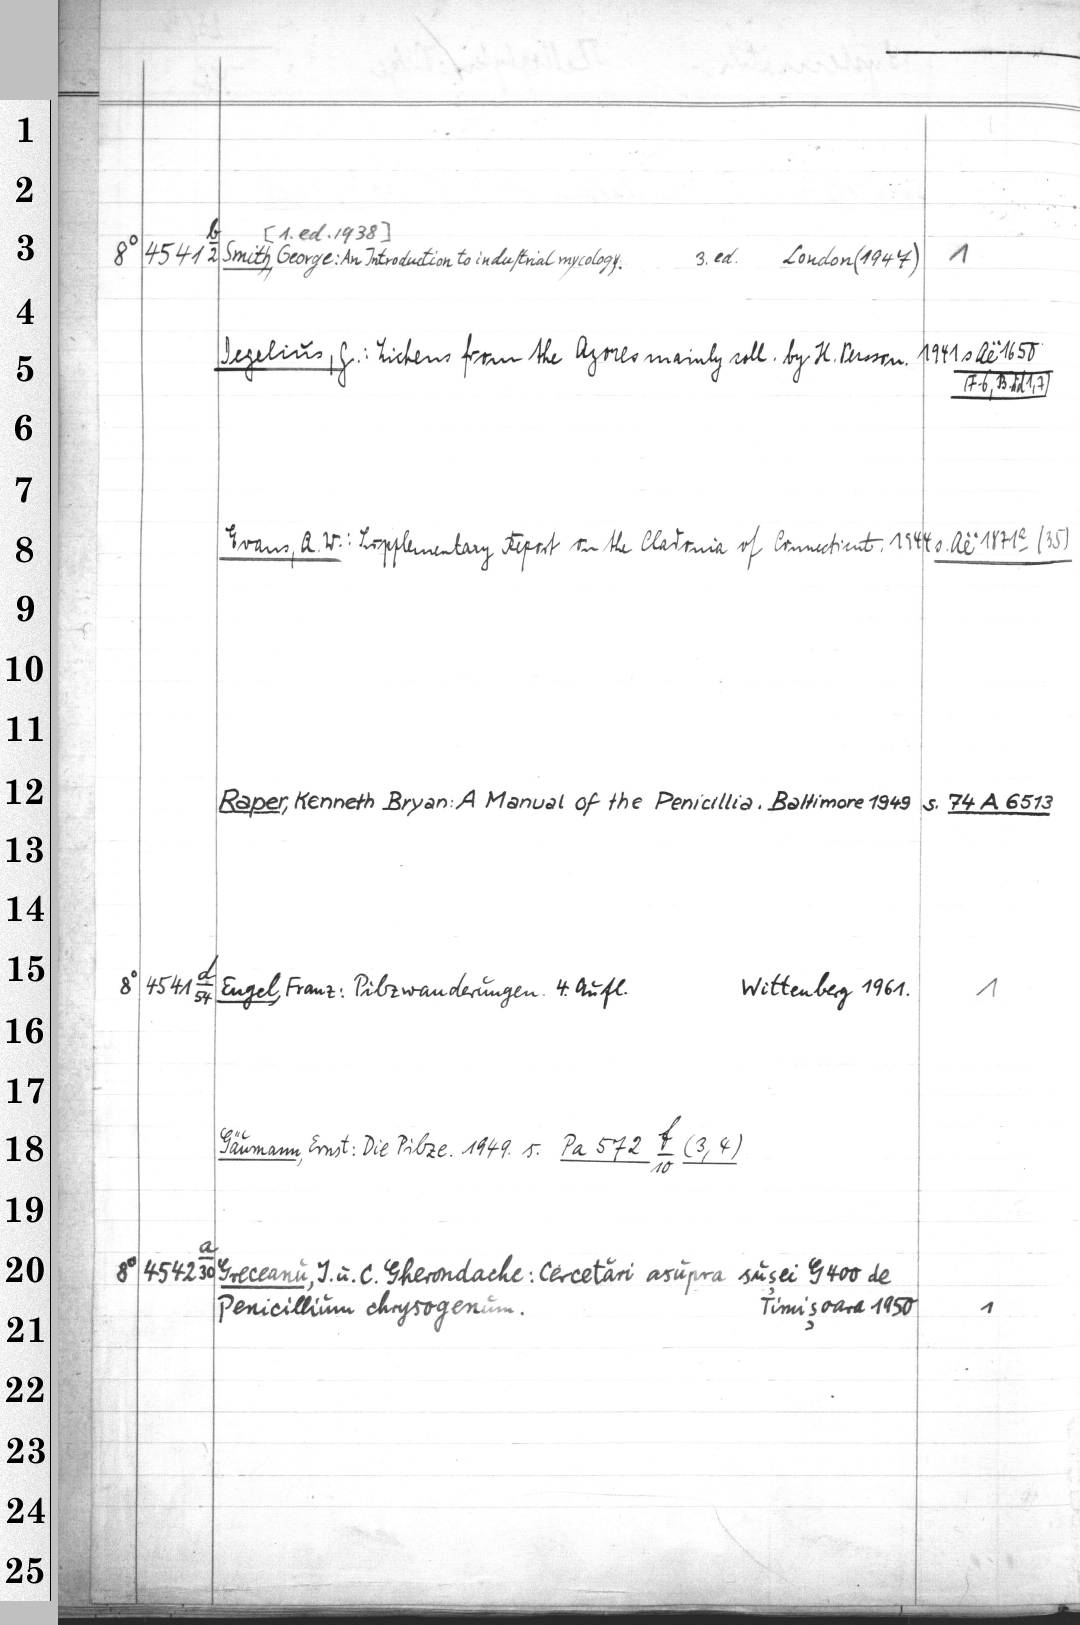 [1. ed. 1938]
8° 4541 b/2 Smith, George: An Introduction to industrial mycology. 3. ed. London (1947) 1
Degelius, G.: Lichens from the Azores mainly coll. by H. Persson. 1941 s Aë 1650
(7-6, B.
Evans, A. W.: Supplementary Report on the Cladonia of Connecticut. 1944 s. Aë 1871e (35)
Raper, Kenneth Bryan: A Manual of the Penicillia. Baltimore 1949 s. 74 A 6513
8° 4541 d/54 Engel, Franz: Pilzwanderungen. 4. Aufl. Wittenberg 1961. 1
Gäumann, Ernst: Die Pilze. 1949. s. Pa 572 f/10 (3, 4)
8° 4542 a/30 Greceanu, I. u. C. Gherondache: Cercetări asupra sușei G 400 de
Penicillium chrysogenum. Timișoara 1950 1
1
2
3
4
5
6
7
8
9
10
11
12
13
14
15
16
17
18
19
20
21
22
23
24
25